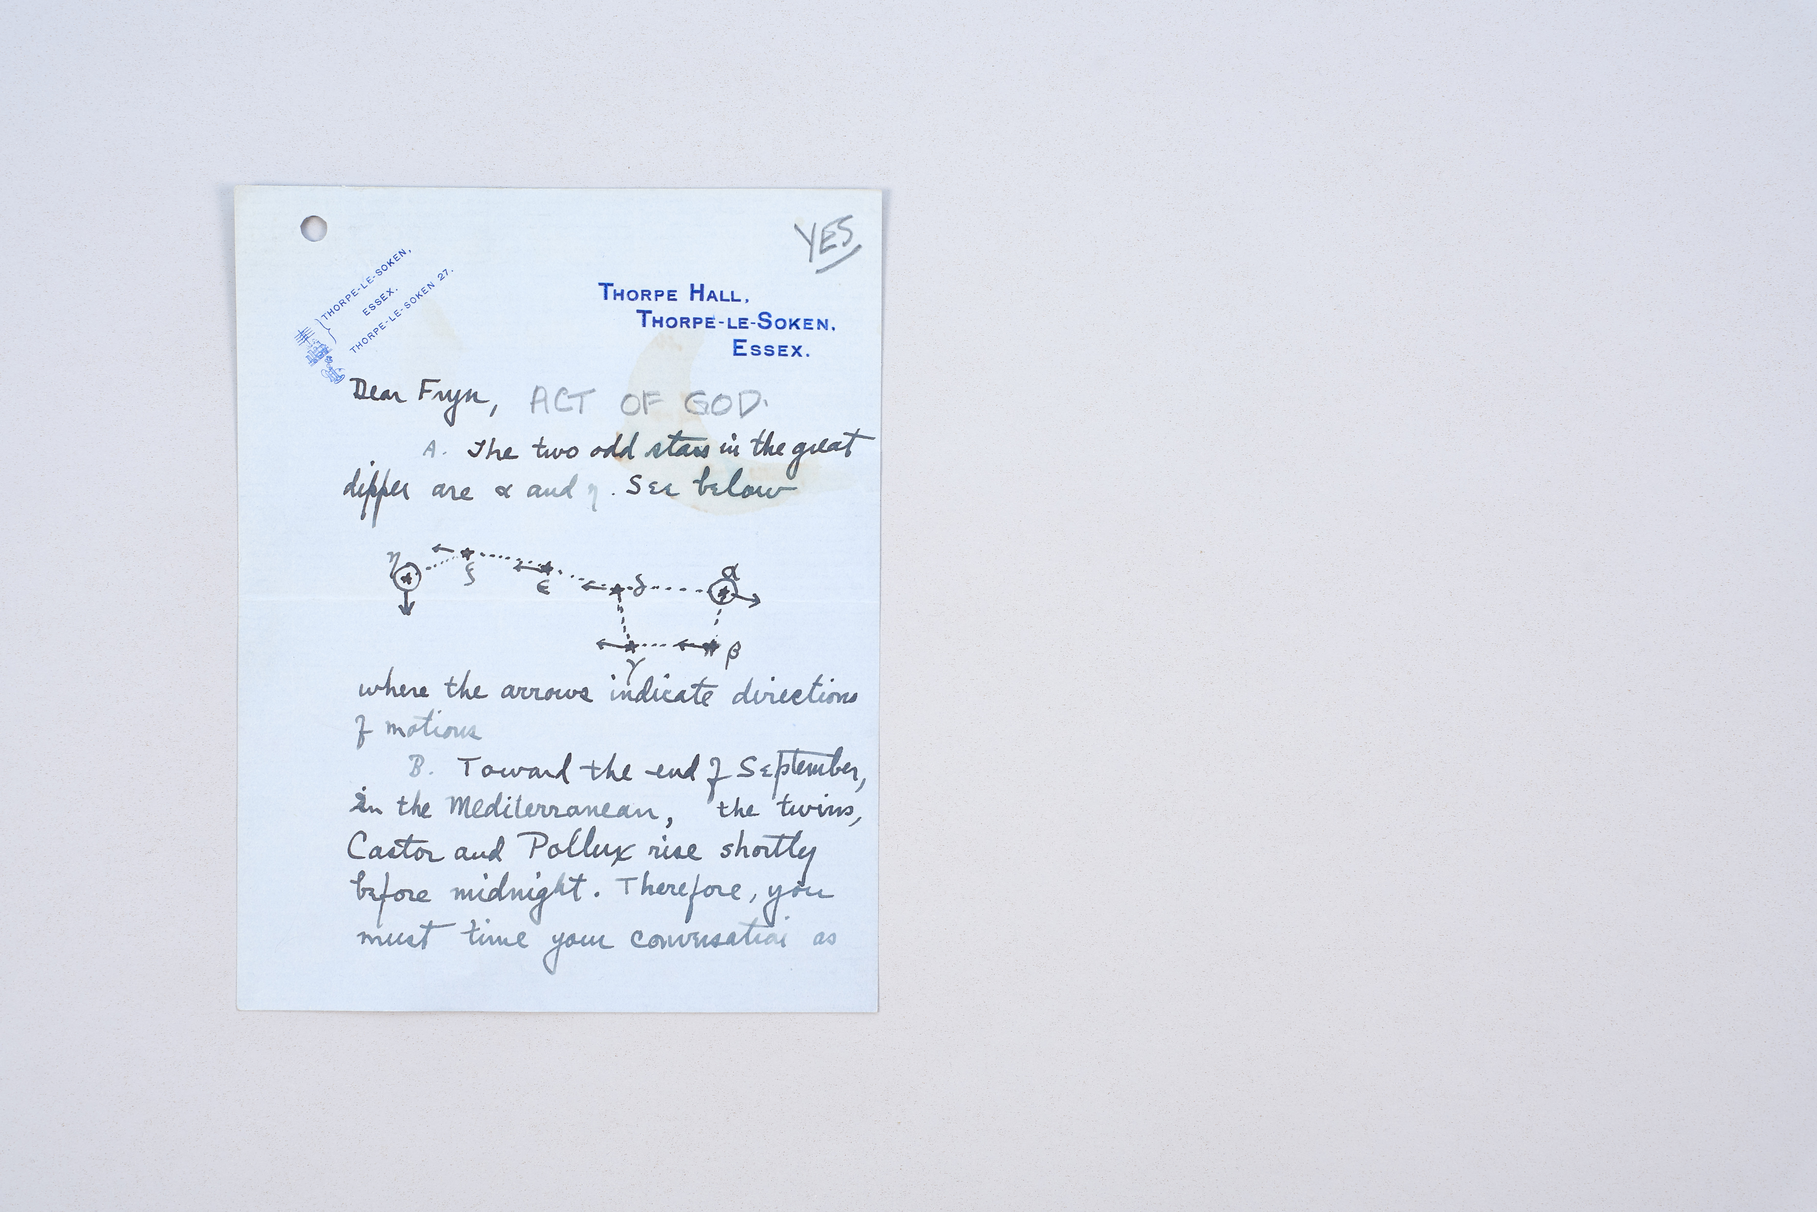 YES
THORPE-LE-SOKEN,
ESSEX.
THORPE-LE-SOKEN 27.
THORPE HALL,
THORPE-LE-SOKEN,
ESSEX.
Dear Fryn, ACT OF GOD.
A. The two odd stars in the great
dipper are α and η. See below
η ζ ε δ α
γ β
where the arrows indicate directions
of motions
B. Toward the end of September,
in the Mediterranean, the twins,
Castor and Pollux rise shortly
before midnight. Therefore, you
must time your conversation as